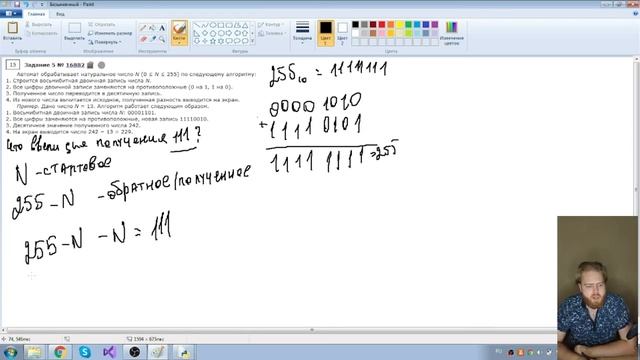 Безымянный - Paint
Буфер обмена
Изображение
Инструменты
Фигуры
Цвета
15 Задание 5 № 16882
Автомат обрабатывает натуральное число N (0 ≤ N ≤ 255) по следующему алгоритму:
1. Строится восьмибитная двоичная запись числа N.
2. Все цифры двоичной записи заменяются на противоположные (0 на 1, 1 на 0).
3. Полученное число переводится в десятичную запись.
4. Из нового числа вычитается исходное, полученная разность выводится на экран.
Пример. Дано число N = 13. Алгоритм работает следующим образом.
1. Восьмибитная двоичная запись числа N: 00001101.
2. Все цифры заменяются на противоположные, новая запись 11110010.
3. Десятичное значение полученного числа 242.
4. На экран выводится число 242 − 13 = 229.
Что ввели для получения 111?
N - стартовое
255 - N - обратное/полученное
255 - N - N = 111
255₁₀ = 11111111
0000 1010
+ 1111 0101
1111 1111 = 255
74, 546пкс
1596 × 675пкс